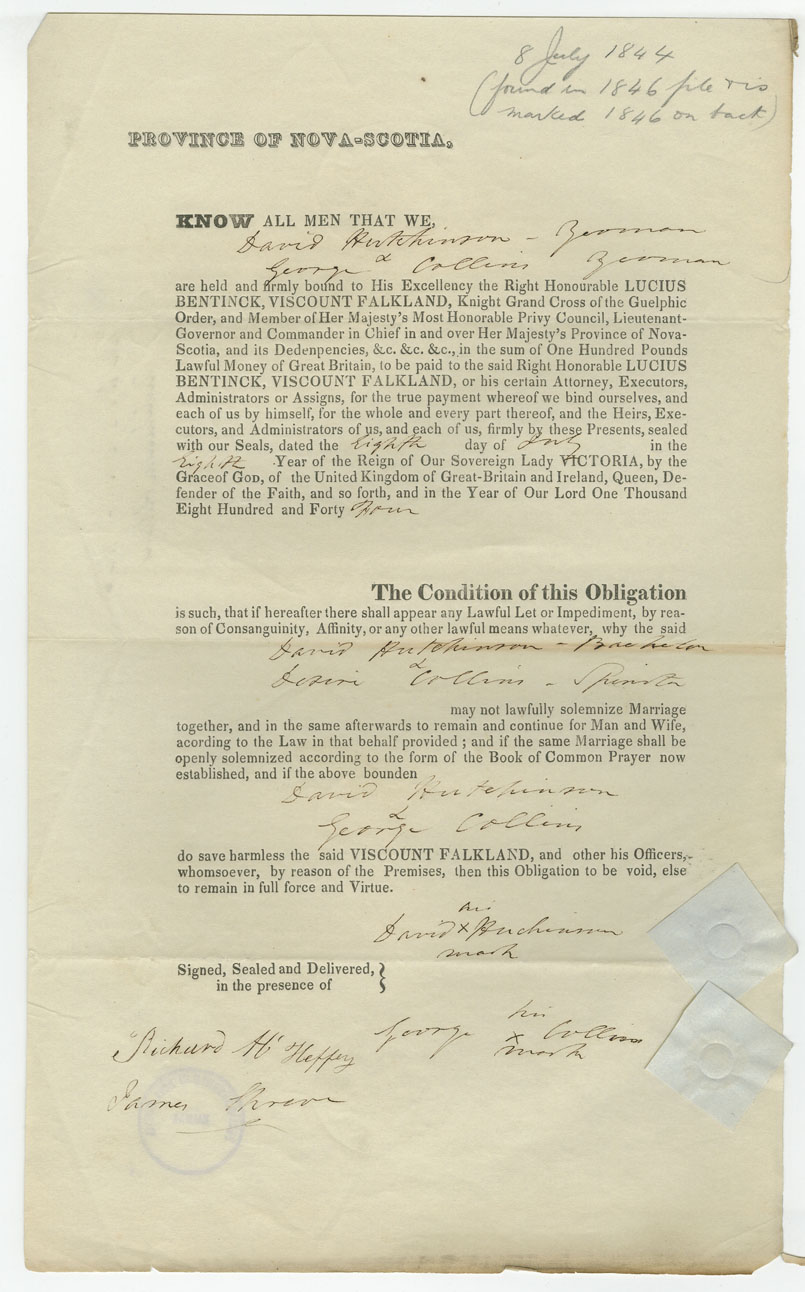 8 July 1844
(found in 1846 file & is
marked 1846 on back)
PROVINCE OF NOVA-SCOTIA.
KNOW ALL MEN THAT WE,
David Hutchinson - Yeoman
&
George Collins Yeoman
are held and firmly bound to His Excellency the Right Honourable LUCIUS
BENTINCK, VISCOUNT FALKLAND, Knight Grand Cross of the Guelphic
Order, and Member of Her Majesty's Most Honorable Privy Council, Lieutenant-
Governor and Commander in Chief in and over Her Majesty's Province of Nova-
Scotia, and its Dedenpencies, &c. &c. &c., in the sum of One Hundred Pounds
Lawful Money of Great Britain, to be paid to the said Right Honorable LUCIUS
BENTINCK, VISCOUNT FALKLAND, or his certain Attorney, Executors,
Administrators or Assigns, for the true payment whereof we bind ourselves, and
each of us by himself, for the whole and every part thereof, and the Heirs, Exe-
cutors, and Administrators of us, and each of us, firmly by these Presents, sealed
with our Seals, dated the Eighth day of July in the
Eighth Year of the Reign of Our Sovereign Lady VICTORIA, by the
Graceof God, of the United Kingdom of Great-Britain and Ireland, Queen, De-
fender of the Faith, and so forth, and in the Year of Our Lord One Thousand
Eight Hundred and Forty Four
The Condition of this Obligation
is such, that if hereafter there shall appear any Lawful Let or Impediment, by rea-
son of Consanguinity, Affinity, or any other lawful means whatever, why the said
David Hutchinson - Bachelor
&
Desire Collins - Spinster
may not lawfully solemnize Marriage
together, and in the same afterwards to remain and continue for Man and Wife,
acording to the Law in that behalf provided ; and if the same Marriage shall be
openly solemnized according to the form of the Book of Common Prayer now
established, and if the above bounden
David Hutchinson
&
George Collins
do save harmless the said VISCOUNT FALKLAND, and other his Officers,
whomsoever, by reason of the Premises, then this Obligation to be void, else
to remain in full force and Virtue.
his
David x Huchinson
mark
Signed, Sealed and Delivered,
in the presence of
his
George x Collins
mark
Richard Mc Heffey
James Shreve